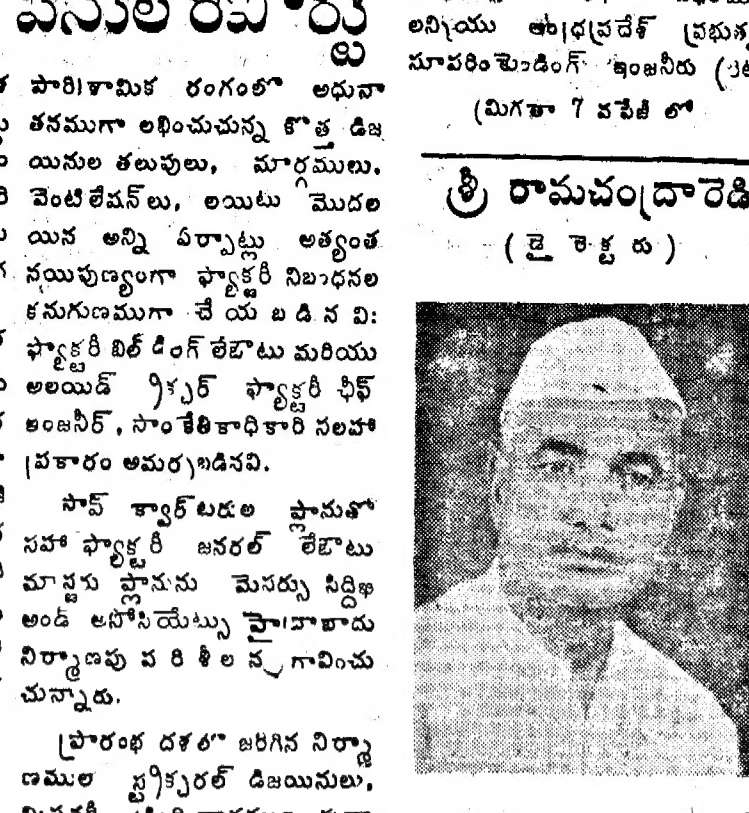 పనుల రిపోర్టు
పారిశ్రామిక రంగంలో అధునా
తనముగా లభించుచున్న కొత్త డిజ
యినుల తలుపులు, మార్గములు,
వెంటిలేషన్‌లు, లయిటు మొదల
యిన అన్ని ఏర్పాట్లు అత్యంత
నయిపుణ్యంగా ఫ్యాక్టరీ నిబంధనల
కనుగుణముగా చేయబడినవి:
ఫ్యాక్టరీ బిల్డింగ్ లేఔటు మరియు
అలయిడ్ ఫ్యాక్టరీ ఛీఫ్
ఇంజనీర్, సాంకేతికాధికారి సలహా
ప్రకారం అమర్చబడినవి.
సాప్ క్వార్టరుల ప్లానుతో
సహా ఫ్యాక్టరీ జనరల్ లేఔటు
మాస్టరు ప్లానును మెసర్సు సిద్దిఖి
అండ్ అసోసియేట్సు హైదాబాదు
నిర్మాణపు పరిశీలన గావించు
చున్నారు.
ప్రారంభ దశలో జరిగిన నిర్మా
ణముల స్ట్రక్చరల్ డిజయినులు,
అన్నియు ఆంధ్రప్రదేశ్
సూపరింటెండింగ్ ఇంజనీరు
(మిగతా 7 వ పేజీ లో
శ్రీ రామచంద్రారెడ్డి
(డైరెక్టరు)